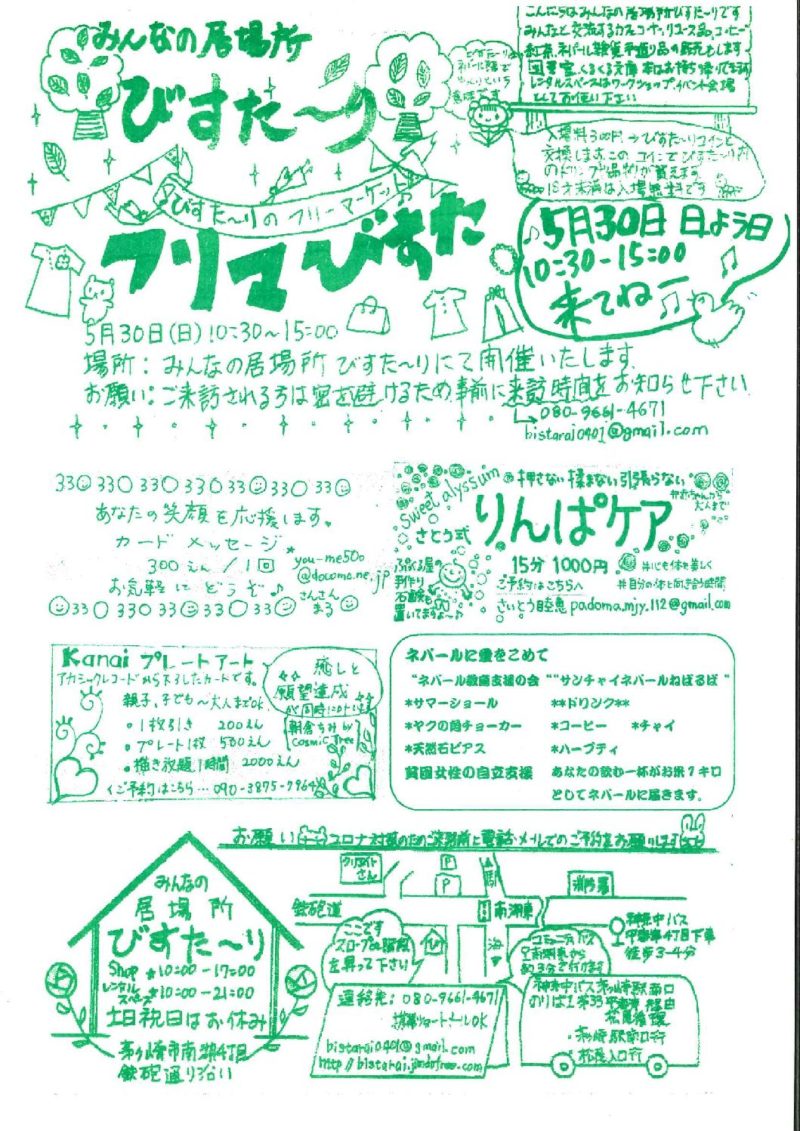 みんなの居場所
びすた〜り
こんにちはみんなの居場所びすた〜りです
みんなと交流するカフェコーナー、リユース品、コーヒー
紅茶、ネパール雑貨、手造り品の販売もします
図書室、くるくる文庫 本はお持ち帰りできます
レンタルスペースはワークショップ、イベント会場
としてお使い下さい
びすた〜り
ネパール語で
ゆっくりという
意味です
入場料300円→びすた〜りコインと
交換します。このコインでびすた〜り内
のドリンク、品物が買えます
は入場無料です
びすた〜りのフリーマーケット♪
フリマびすた
♪5月30日 日よう日
10:30-15:00
来てねー
5月30日(日)10:30〜15:00
場所: みんなの居場所 びすた〜りにて開催いたします
お願い:ご来訪される方は密を避けるため、事前に来訪時間をお知らせ下さい
080-9661-4671
bistarai0401@gmail.com
33○33○33○33○33○33○
あなたの笑顔を応援します。
カードメッセージ
300えん/1回
you-me500
@docomo.ne.jp
お気軽にどうぞ♪
さんさん
まる
○33○33○33○33○33○
#押さない 揉まない 引張らない
sweet alyssum
#赤ちゃんから
大人まで
さとう式
りんぱケア
15分 1000円
#心も体も美しく
ご予約はこちらへ
#自分の体と向き合う時間
手作り
石鹸も
置いてますよ〜♪
さいとう睦恵 padoma.mjy.112@gmail.com
Kanai プレートアート
アカシックレコードから下ろしたカードです。
癒しと
願望達成
が同時に叶います
親子、子ども〜大人までOK
・1枚引き 200えん
・プレート1枚 500えん
・描き放題1時間 2000えん
朝倉ちみ by
Cosmic Tree
ご予約はこちら… 090-3875-7964
ネパールに愛をこめて
“ネパール教育支援の会 ”“サンチャイネパールねぱるぱ ”
*サマーショール **ドリンク**
*ヤクの角チョーカー *コーヒー *チャイ
*天然石ピアス *ハーブティ
貧困女性の自立支援 あなたの飲む一杯がお米1キロ
としてネパールに届きます。
お願い コロナ対策のためご来訪前に電話・メールでのご予約をお願いします
みんなの
居場所
びすた〜り
Shop *10:00-17:00
レンタル
スペース *10:00-21:00
土日祝日はお休み
茅ヶ崎市南湖4丁目
鉄砲通り沿い
クリエイト
さん
P
P
駅
消防署
鉄砲道
南湖東
海
び
ここです
スロープか階段
を昇って下さい
コミュニティバス
から
約3分で行けます
神奈中バス
4丁目下車
徒歩3-4分
連絡先: 080-9661-4671
携帯ショートメールOK
bistarai0401@gmail.com
http://bistarai.jimdofree.com
神奈中バス茅ヶ崎駅南口
のりば1 茅33 経由
・茅ヶ崎駅南口行